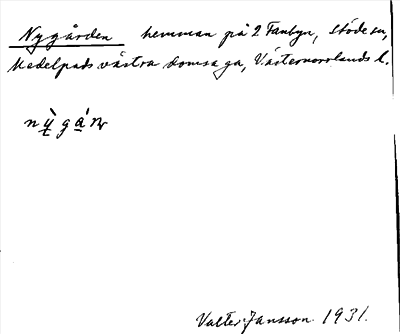 Nygården hemman på 2 Fanbyn, Stöde sn,
Medelpads västra domsaga, Västernorrlands l.
Valter Jansson. 1931.